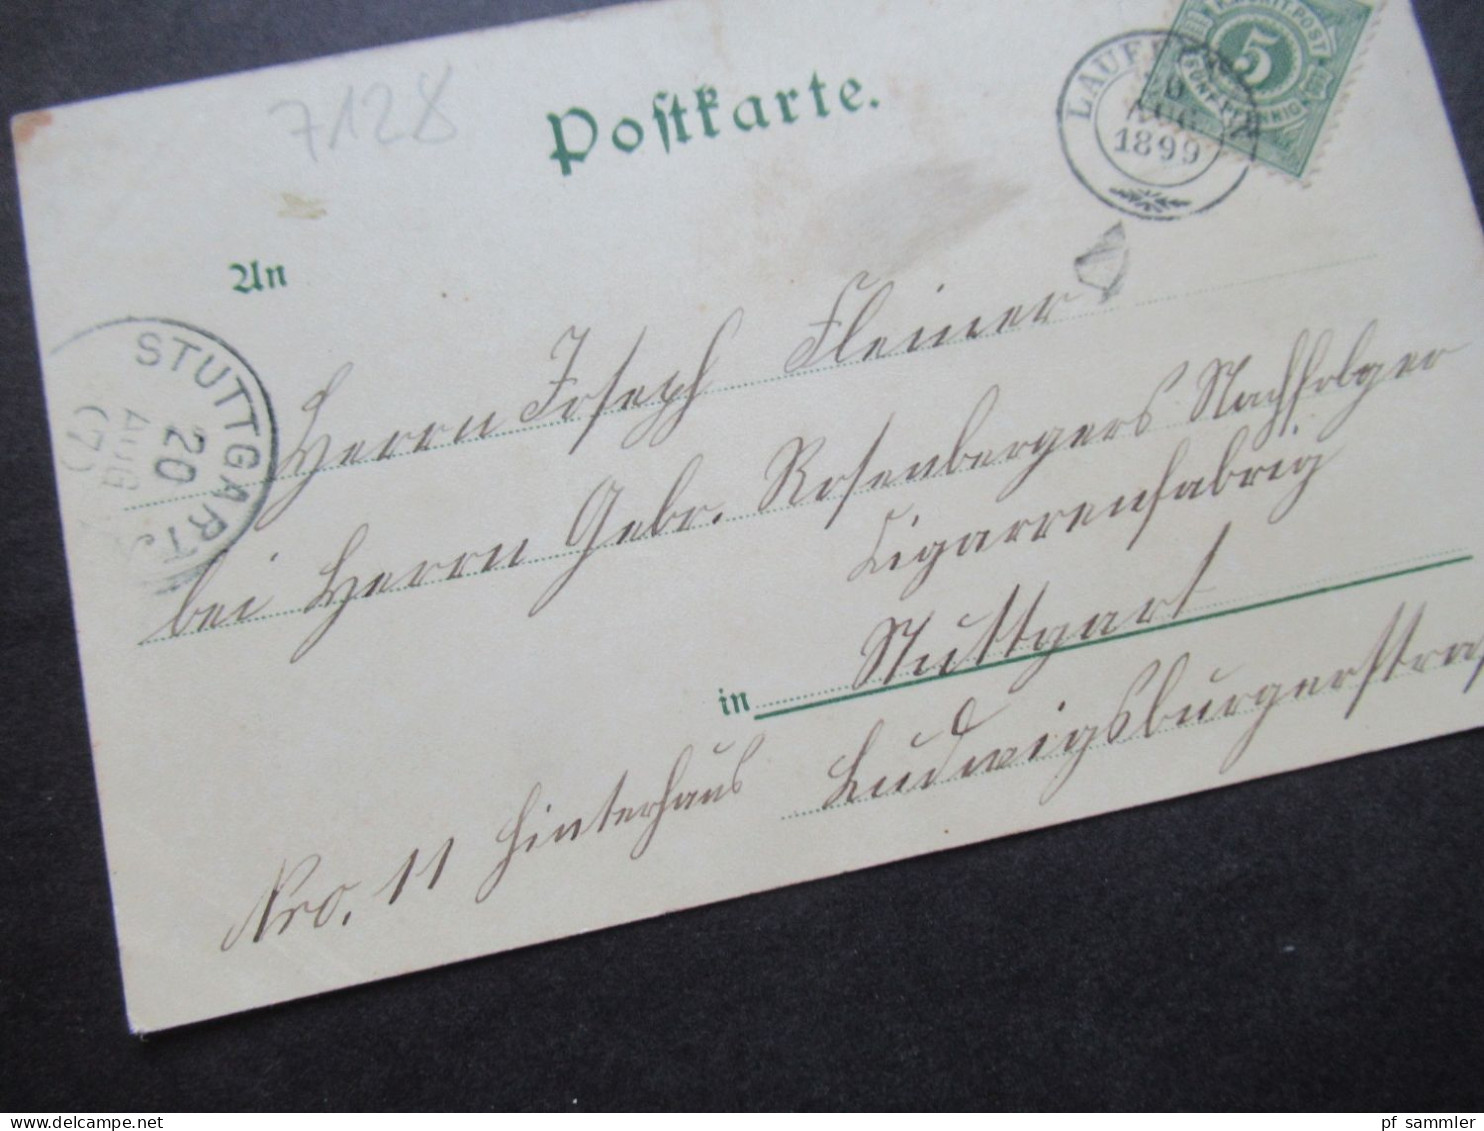 7128
Postkarte.
LAUF
20
AUG
1899
K. WÜRTT. POST
5
FÜNF PFENNIG
An
STUTTGART
20
AUG
(7)
Herrn Joseph Fleiner
bei Herrn Gebr. Rosenbergers Nachfolger
Cigarrenfabrig
in Stuttgart
Nro. 11 Hinterhaus Ludwigsburgerstraß
pf_sammler